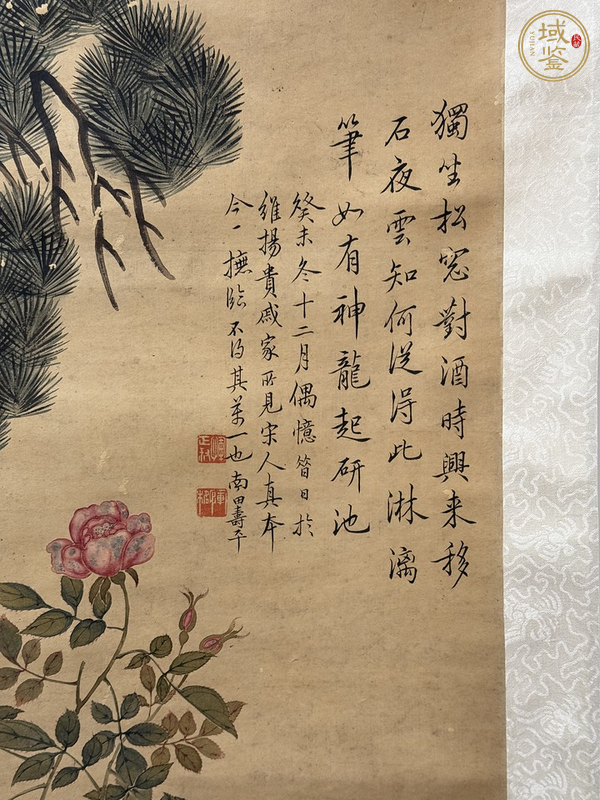 獨坐松窓對酒時興来移
石夜雲知何從得此淋漓
筆如有神龍起研池
癸未冬十二月偶憶昔日於
維揚貴戚家所見宋人真本
今一撫臨不得其萬一也南田壽平
域鑒
YUJIAN